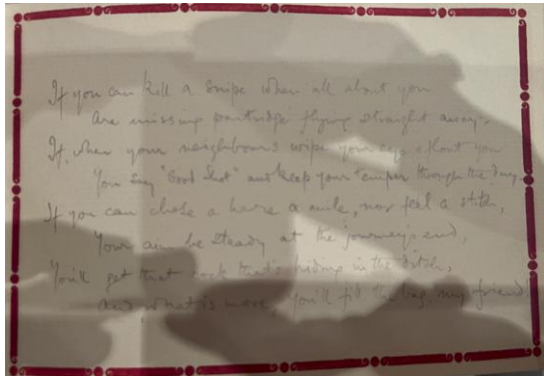 If you can kill a snipe when all about you
Are missing partridge flying straight away.
If, when your neighbours wipe your eye about you
You say "Good Shot" and keep your temper through the day
If you can chase a hare a mile, nor feel a stitch,
Your aim be steady at the journey's end,
You'll get that cock that's hiding in the ditch,
And, what is more, you'll fill the bag, my friend